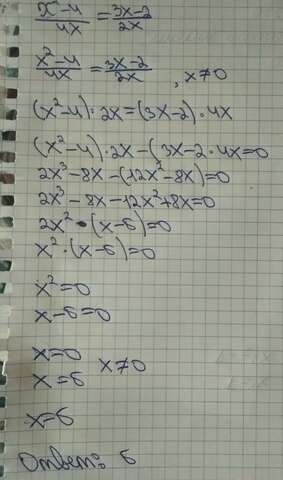 x²-4/4x = 3x-2/2x
x²-4/4x = 3x-2/2x , x≠0
(x²-4)·2x=(3x-2)·4x
(x²-4)·2x-(3x-2·4x=0
2x³-8x-(12x²-8x)=0
2x³-8x-12x²+8x=0
2x²·(x-6)=0
x²·(x-6)=0
x²=0
x-6=0
x=0
x=6 x≠0
x=6
Ответ: 6